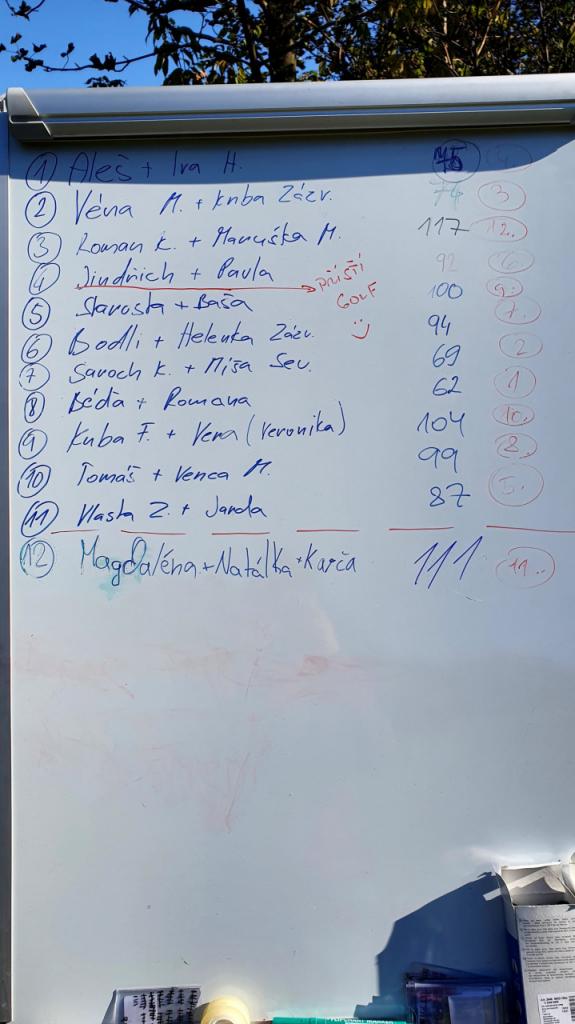 1 Aleš + Iva H. 75 4
2 Véna M. + Kuba Zázv. 74 3.
3 Roman K. + Maruška M. 117 12.
4 Jindřich + Pavla → PŘÍŠTÍ GOLF :) 92 6.
5 Starosta + Báša 100 9.
6 Bodli + Helenka Zázv. 94 7.
7 Saroch K. + Míša Sev. 69 2
8 Béďa + Romana 62 1
9 Kuba F. + Vera (Veronika) 104 10.
10 Tomáš + Venca M. 99 8.
11 Vlasta Z. + Jarda 87 5.
12 MagDaléna + Natálka + Karča 111 11.